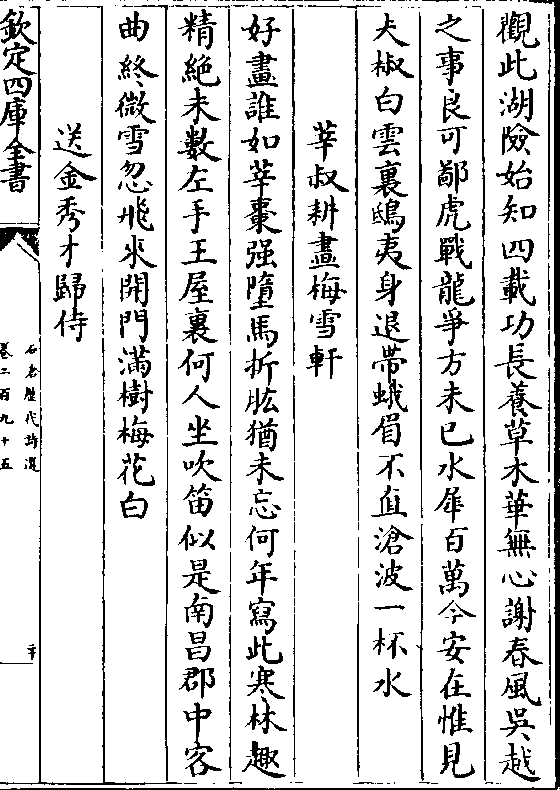 觀此湖險始知四載功長養草木華無心謝春風吳越
之事良可鄙虎戰龍爭方未已水犀百萬今安在惟見
夫椒白雲裏鴟夷身退帶蛾眉不直滄波一杯水
莘叔耕畫梅雪軒
好畫誰如莘棗强墮馬折肱猶未忘何年寫此寒林趣
精絶未數左手王屋裏何人坐吹笛似是南昌郡中客
曲終微雪忽飛來開門滿樹梅花白
送金秀才歸侍
欽定四庫全書
石倉歷代詩選
卷二百九十五
二十